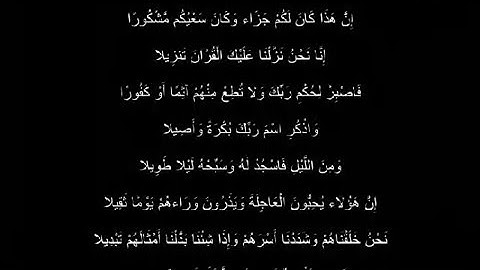 إِنَّ هَذَا كَانَ لَكُمْ جَزَاء وَكَانَ سَعْيُكُم مَّشْكُورًا
إِنَّا نَحْنُ نَزَّلْنَا عَلَيْكَ الْقُرْآنَ تَنزِيلا
فَاصْبِرْ لِحُكْمِ رَبِّكَ وَلا تُطِعْ مِنْهُمْ آثِمًا أَوْ كَفُورًا
وَاذْكُرِ اسْمَ رَبِّكَ بُكْرَةً وَأَصِيلا
وَمِنَ اللَّيْلِ فَاسْجُدْ لَهُ وَسَبِّحْهُ لَيْلا طَوِيلا
إِنَّ هَؤُلاء يُحِبُّونَ الْعَاجِلَةَ وَيَذَرُونَ وَرَاءهُمْ يَوْمًا ثَقِيلا
نَحْنُ خَلَقْنَاهُمْ وَشَدَدْنَا أَسْرَهُمْ وَإِذَا شِئْنَا بَدَّلْنَا أَمْثَالَهُمْ تَبْدِيلا